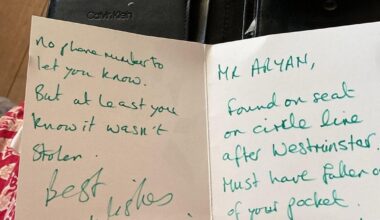 Calvin Klein
no phone number to
let you know.
But at least you
know it wasn't
stolen.
best
wishes
MR ARYAN,
Found on seat
on circle line
after Westminster.
Must have fallen o
of your pocket.